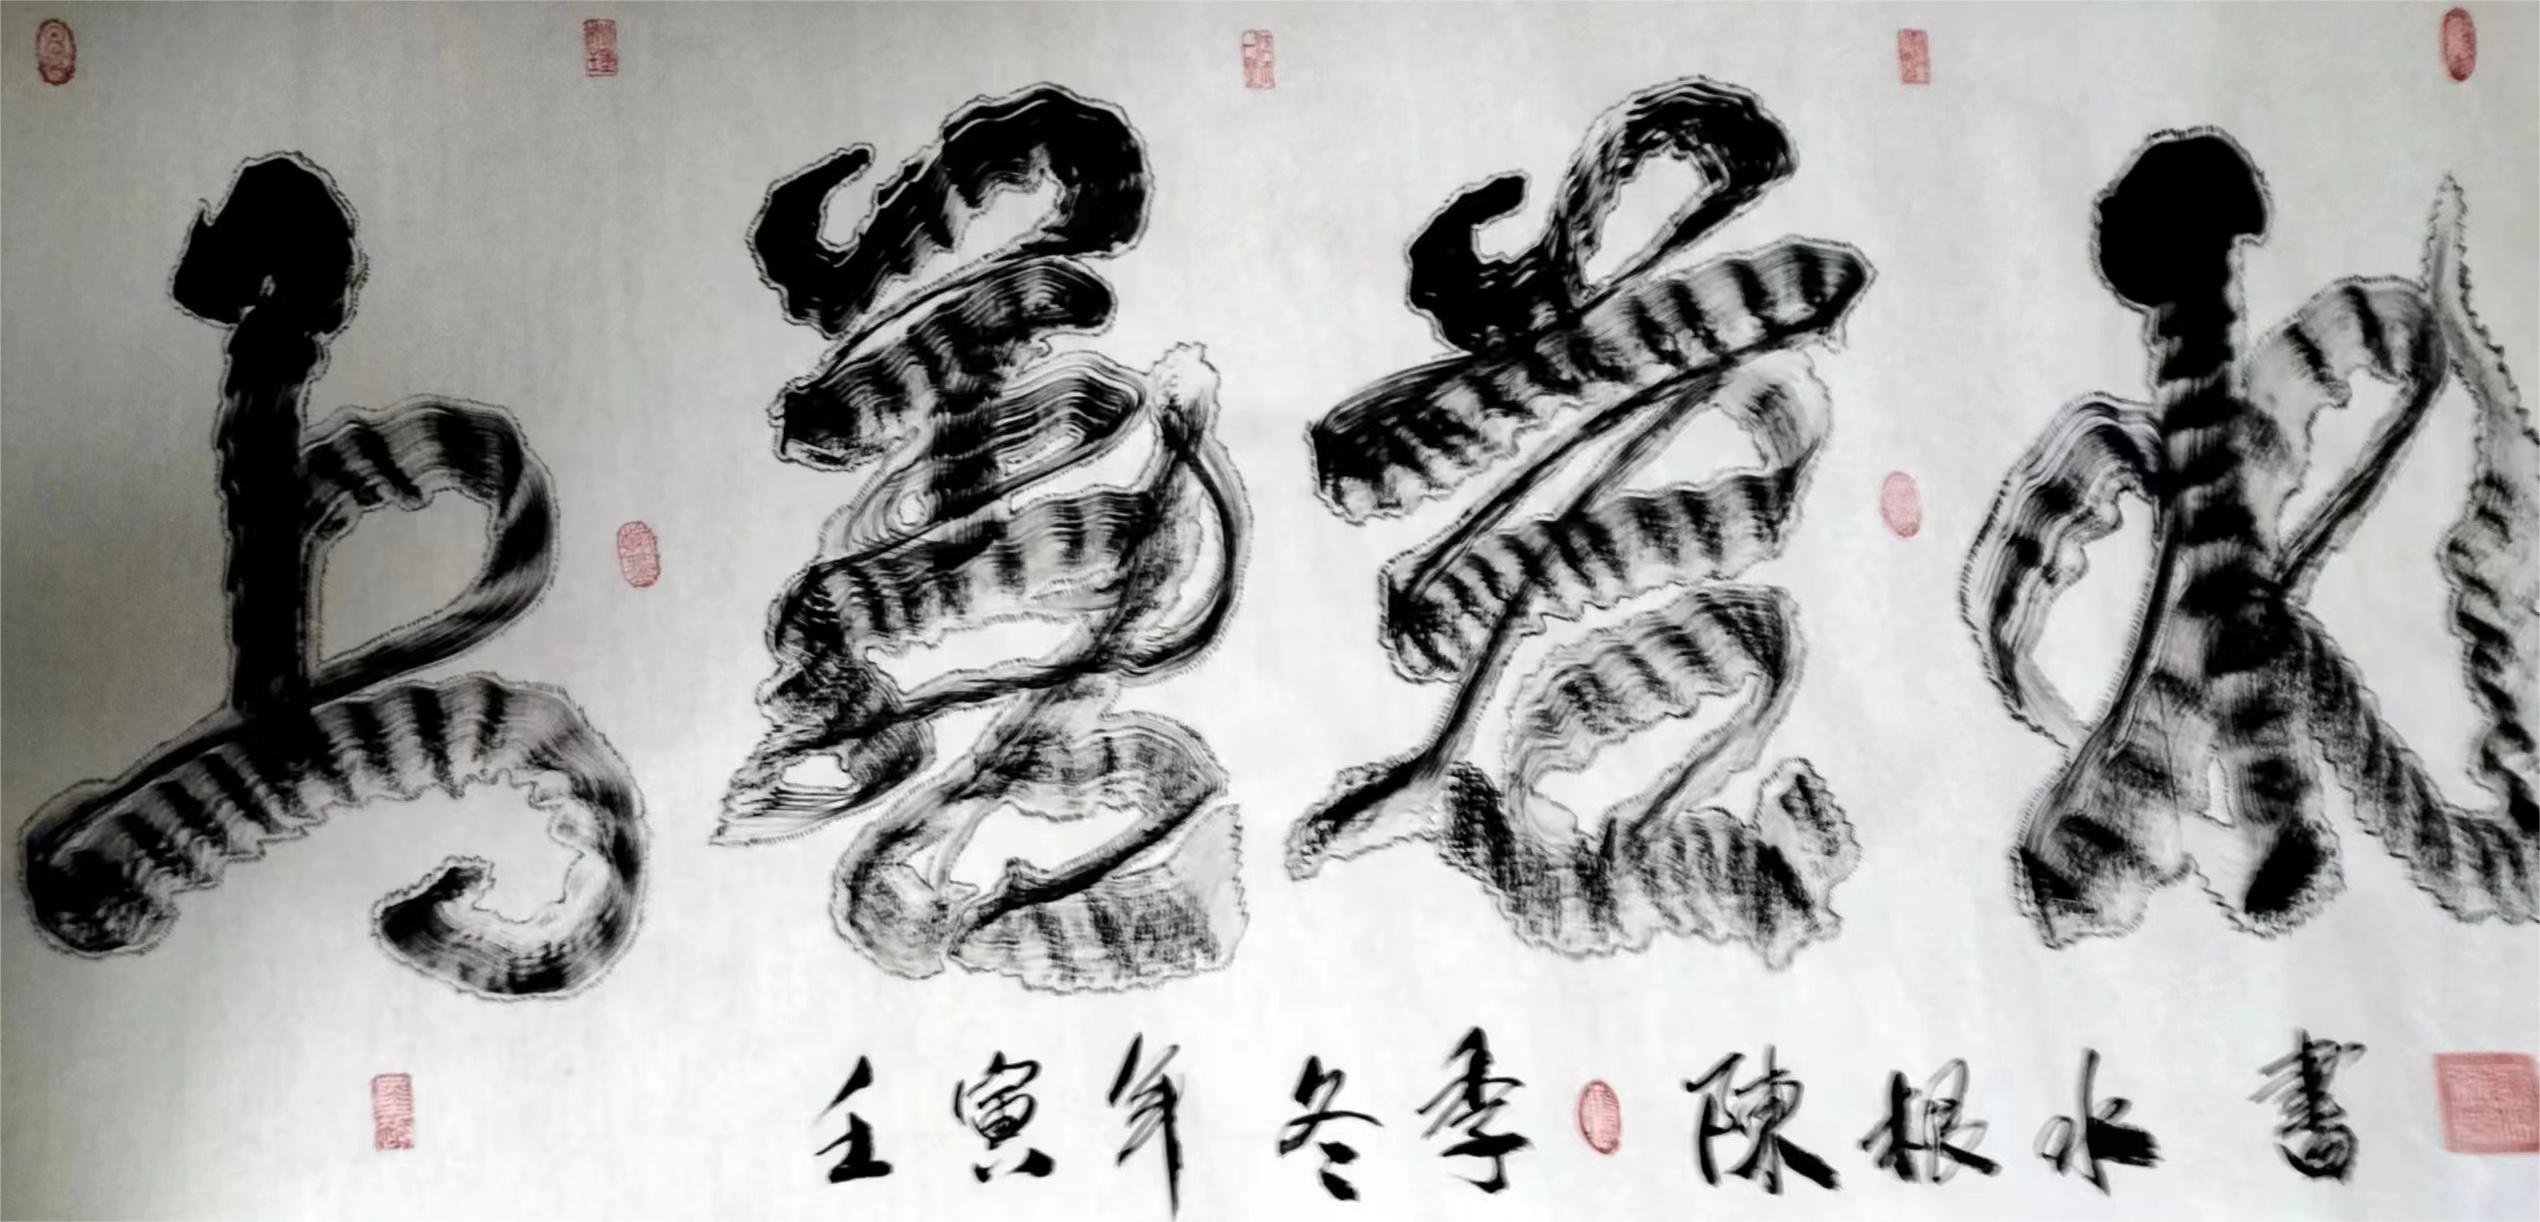 上善若水
壬寅年冬季陳根水書